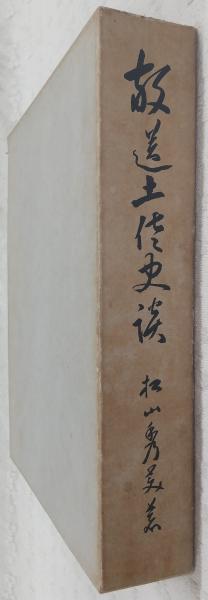 放送土佐史談
松山秀美著